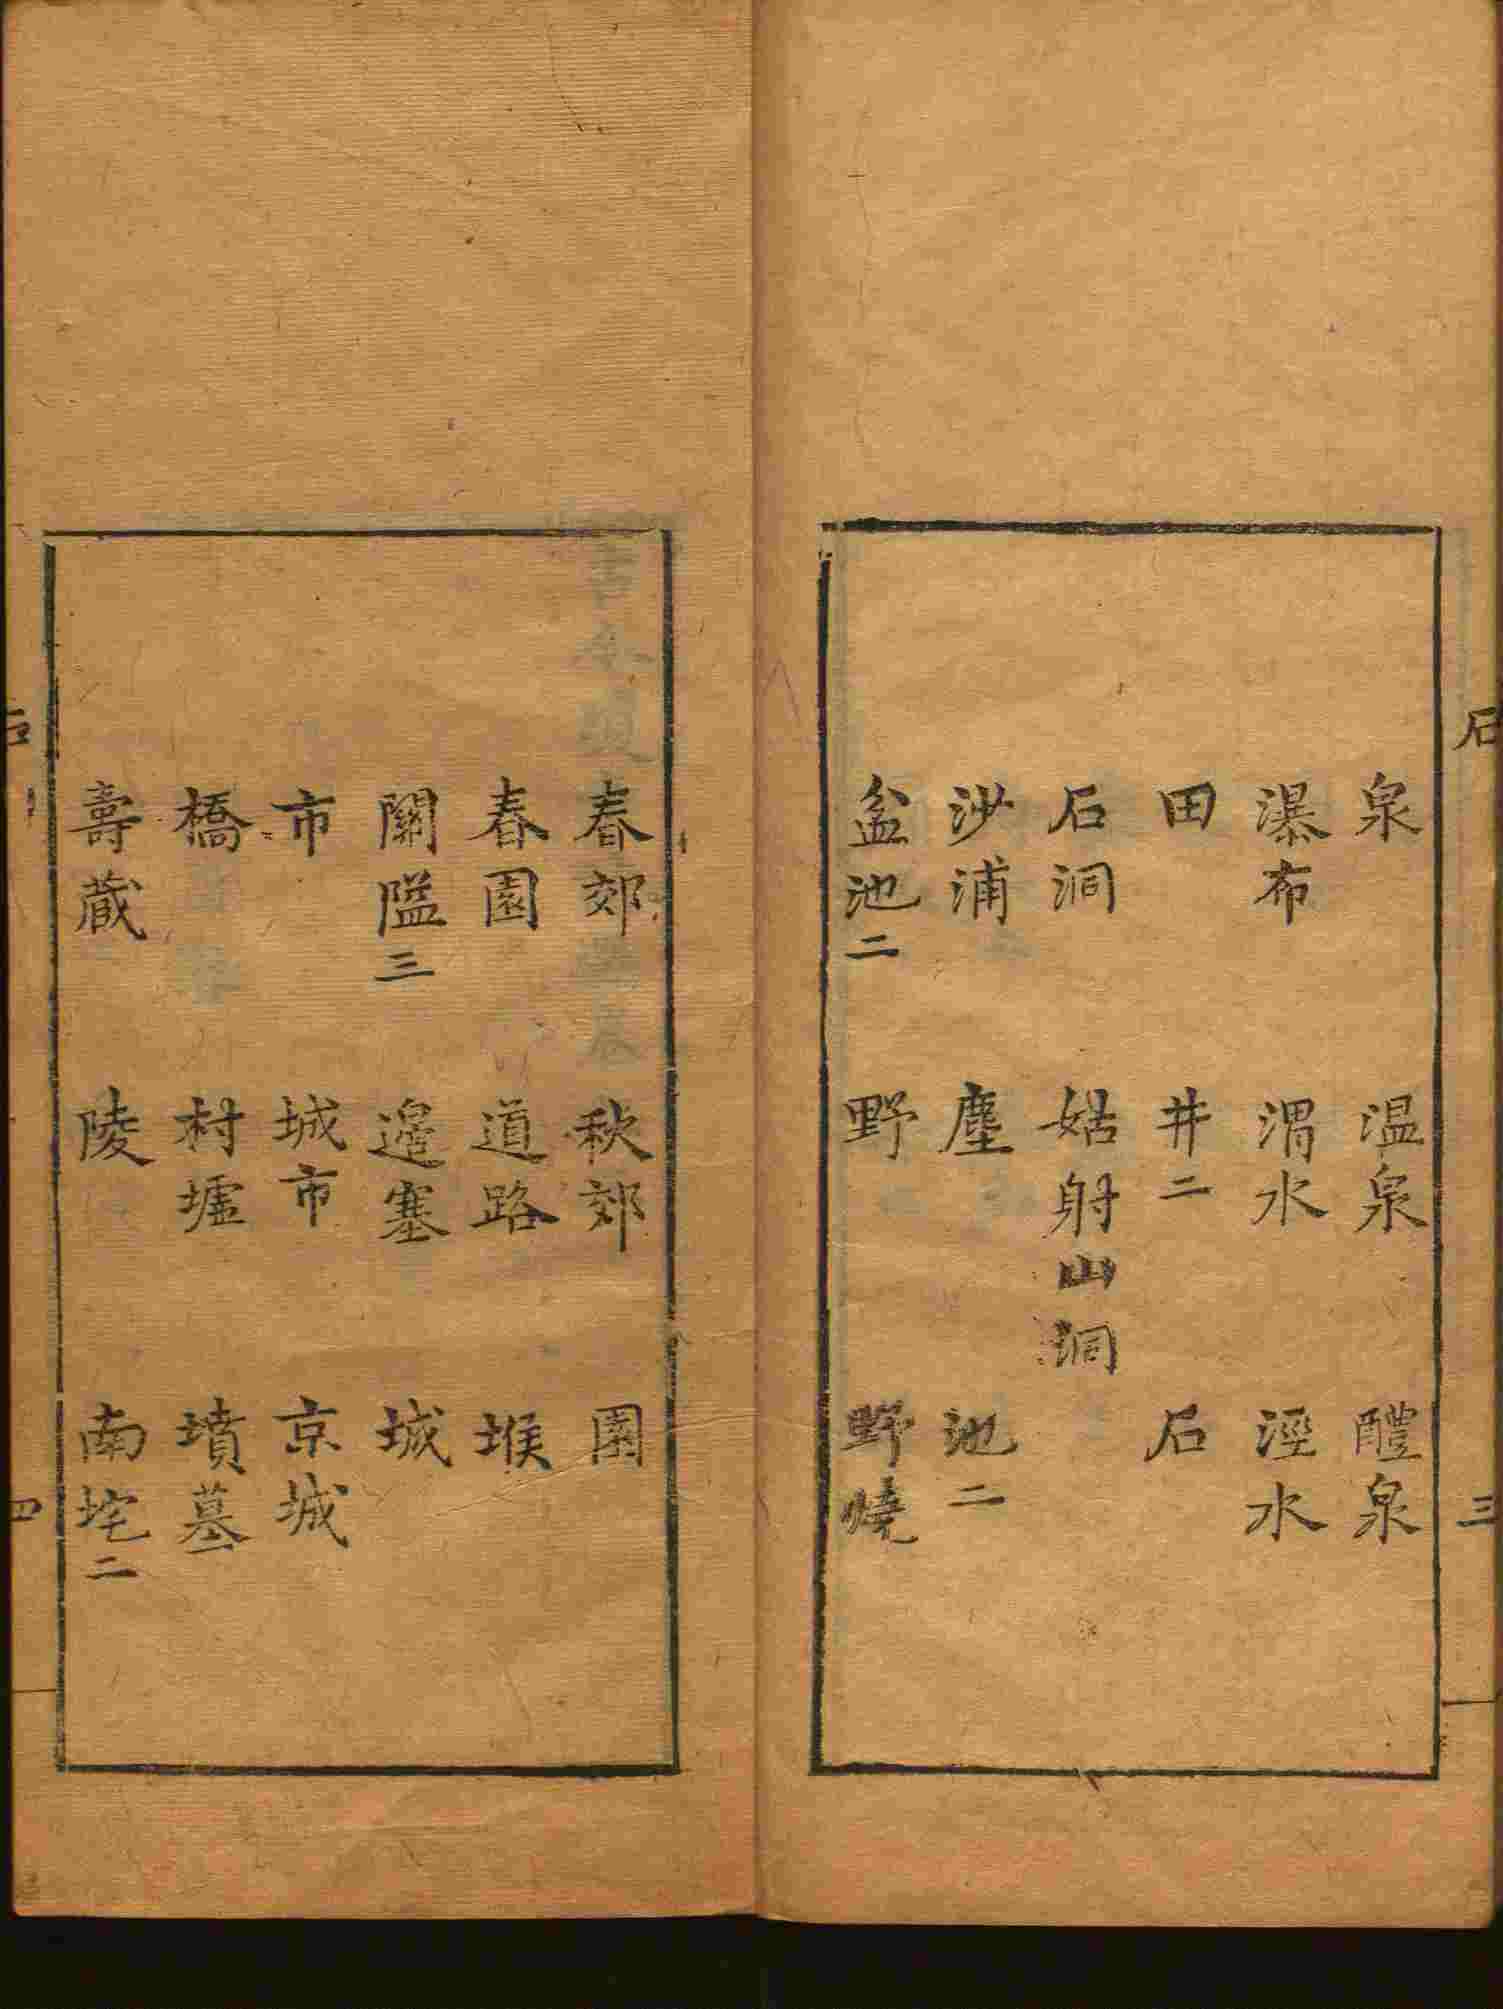 泉 温泉 醴泉
瀑布 渭水 涇水
田 井二 石
石洞 姑射山洞
沙浦 塵 池二
盆池二 野 野燒
春郊 秋郊 園
春園 道路 堠
關隘三 邉塞 城
市 城市 京城
橋 村墟 墳墓
壽藏 陵 南垞二
三
四